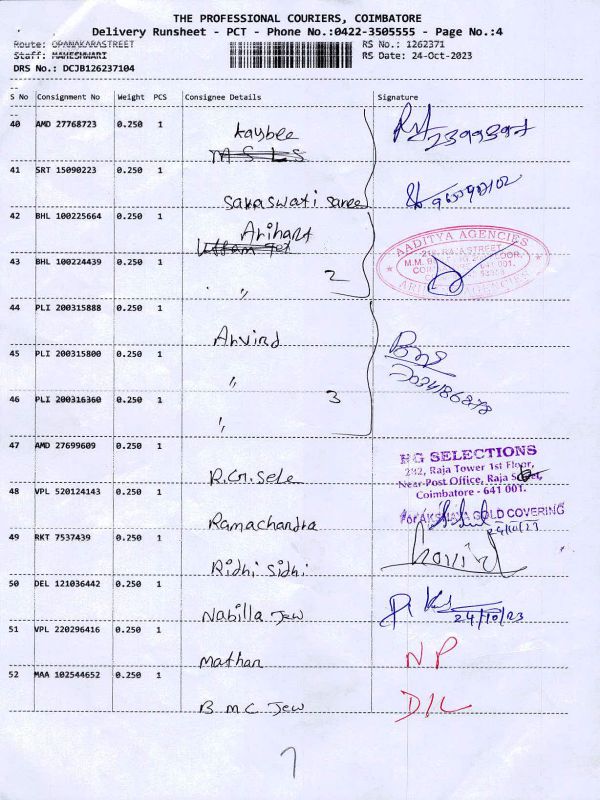 THE PROFESSIONAL COURIERS, COIMBATORE
Delivery Runsheet - PCT - Phone No.:0422-3505555 - Page No.:4
Route: OPANAKARASTREET
RS No.: 1262371
Staff: MAHESHWARI
RS Date: 24-Oct-2023
DRS No.: DCJB126237104
S No Consignment No Weight PCS Consignee Details Signature
40 AMD 27768723 0.250 1
Kaybee
M S L S
41 SRT 15090223 0.250 1
Saraswati Saree
42 BHL 100225664 0.250 1
Arihant
Uttam Tex
AADITYA AGENCIES
43 BHL 100224439 0.250 1
〃 2
44 PLI 200315888 0.250 1
Arvind
45 PLI 200315800 0.250 1
〃
46 PLI 200316360 0.250 1
〃 3
47 AMD 27699609 0.250 1
R.G.Sele
HG SELECTIONS
232, Raja Tower 1st Floor,
Near Post Office, Raja Street,
Coimbatore - 641 001.
48 VPL 520124143 0.250 1
Ramachandra
For AKSHAYA GOLD COVERING
24/10/23
49 RKT 7537439 0.250 1
Ridhi Sidhi
Govind
50 DEL 121036442 0.250 1
Nabilla Jew
24/10/23
51 VPL 220296416 0.250 1
Mathan NP
52 MAA 102544652 0.250 1
B M C Jew D/L
7